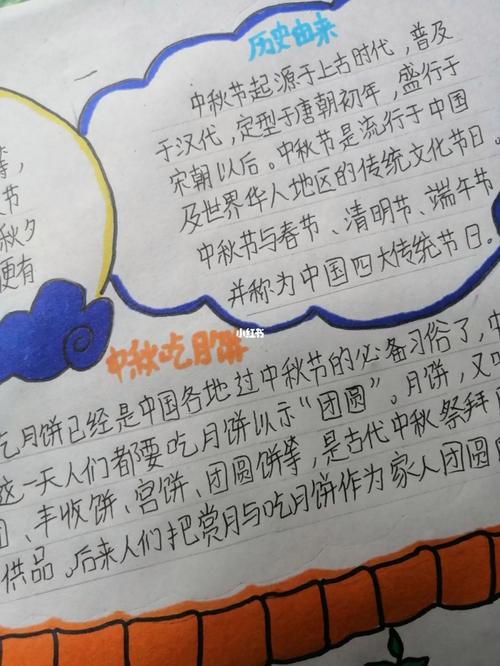 历史由来
中秋节起源于上古时代，普及
于汉代，定型于唐朝初年，盛行于
宋朝以后。中秋节是流行于中国
及世界华人地区的传统文化节日。
中秋节与春节、清明节、端午节
并称为中国四大传统节日。
等，
节
秋夕
便有
中秋吃月饼
吃月饼已经是中国各地过中秋节的必备习俗了，中
这一天人们都要吃月饼以示“团圆”。月饼，又叫
丰收饼、宫饼、团圆饼等，是古代中秋祭拜
供品。后来人们把赏月与吃月饼作为家人团圆
小红书